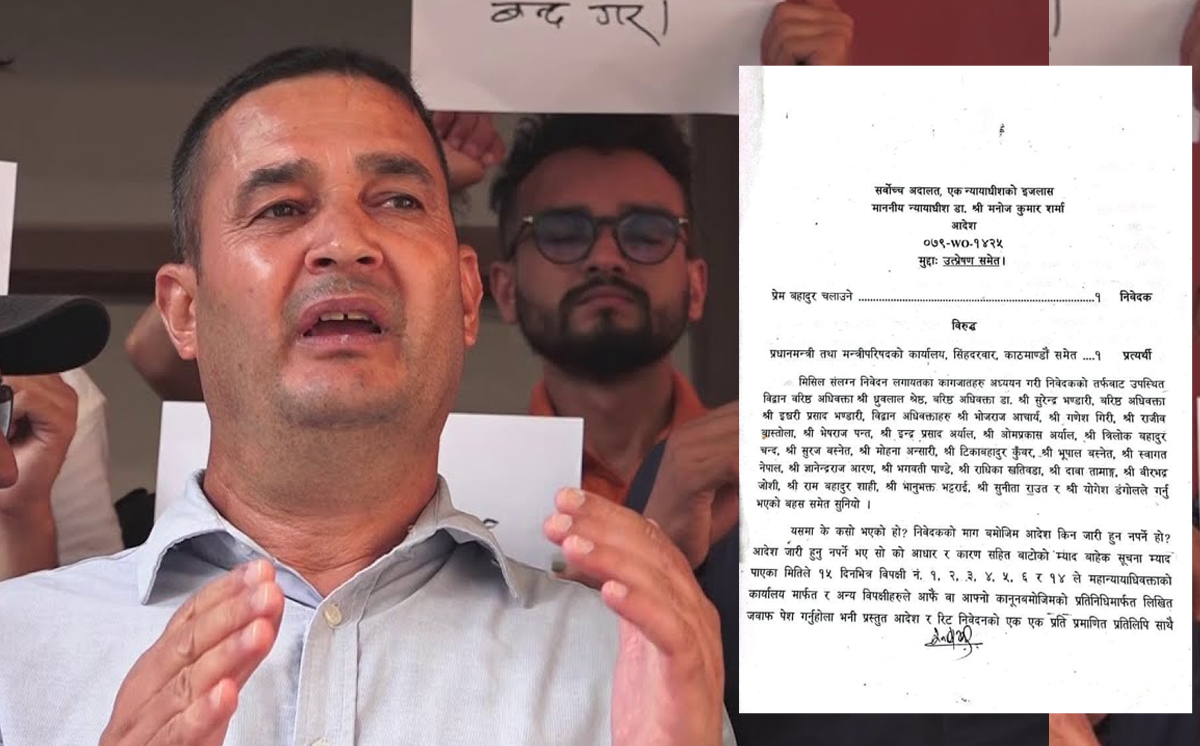 बन्द गर।
सर्बोच्च अदालत, एक न्यायाधीशको इजलास
माननीय न्यायाधीश डा. श्री मनोज कुमार शर्मा
आदेश
०७९-WO-१४२५
मुद्दाः उत्प्रेषण समेत।
प्रेम बहादुर चलाउने ..........................................................................१ निवेदक
विरुद्ध
प्रधानमन्त्री तथा मन्त्रीपरिषदको कार्यालय, सिंहदरवार, काठमाण्डौं समेत ....१ प्रत्यर्थी
मिसिल संलग्न निवेदन लगायतका कागजातहरु अध्ययन गरी निवेदकको तर्फबाट उपस्थित
विद्वान वरिष्ठ अधिवक्ता श्री ध्रुवलाल श्रेष्ठ, बरिष्ठ अधिवक्ता डा. श्री सुरेन्द्र भण्डारी, बरिष्ठ अधिवक्ता
श्री इश्वरी प्रसाद भण्डारी, विद्वान अधिवक्ताहरु श्री भोजराज आचार्य, श्री गणेश गिरी, श्री राजीव
बास्तोला, श्री भेषराज पन्त, श्री इन्द्र प्रसाद अर्याल, श्री ओमप्रकास अर्याल, श्री त्रिलोक बहादुर
चन्द, श्री सुरज बस्नेत, श्री मोहना अन्सारी, श्री टिकाबहादुर कुँवर, श्री भूपाल बस्नेत, श्री स्वागत
नेपाल, श्री ज्ञानेन्द्रराज आरण, श्री भगवती पाण्डे, श्री राधिका खतिवडा, श्री दावा तामाङ्ग, श्री बीरभद्र
जोशी, श्री राम बहादुर शाही, श्री भानुभक्त भट्टराई, श्री सुनीता राउत र श्री योगेश डंगोलले गर्नु
भएको बहस समेत सुनियो ।
यसमा के कसो भएको हो? निवेदकको माग बमोजिम आदेश किन जारी हुन नपर्ने हो?
आदेश जारी हुनु नपर्ने भए सो को आधार र कारण सहित बाटोको म्याद बाहेक सूचना म्याद
पाएका मितिले १५ दिनभित्र विपक्षी नं. १, २, ३, ४, ५, ६ र १४ ले महान्यायाधिवक्ताको
कार्यालय मार्फत र अन्य विपक्षीहरुले आफै वा आफ्नो कानूनबमोजिमको प्रतिनिधिमार्फत लिखित
जवाफ पेश गर्नुहोला भनी प्रस्तुत आदेश र रिट निवेदनको एक एक प्रति प्रमाणित प्रतिलिपि साथै